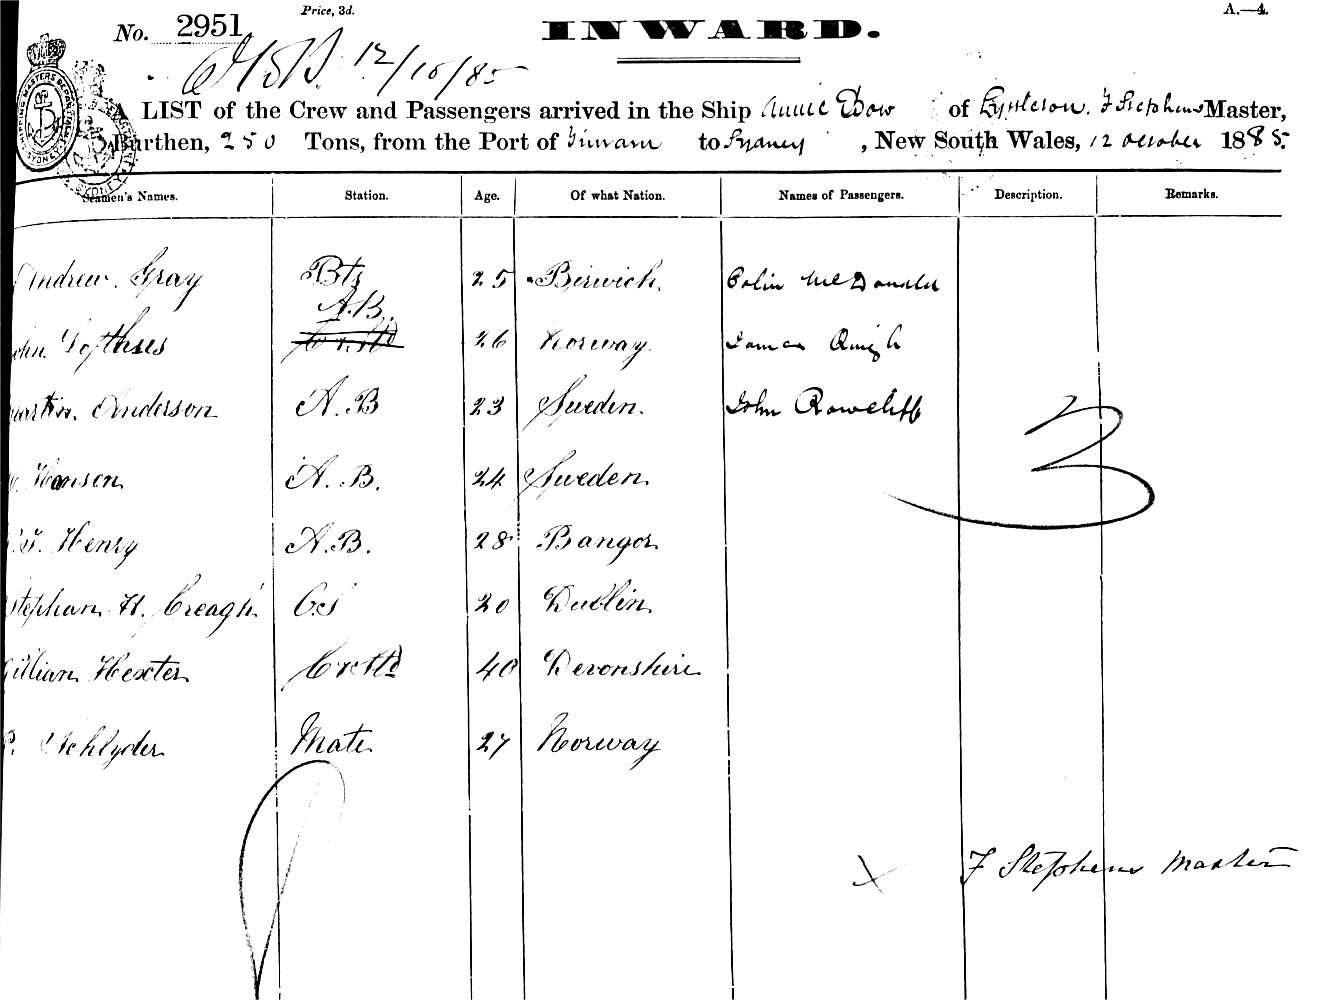 Price, 3d.
A.—4.
No. 2951
INWARD.
12/10/85
A LIST of the Crew and Passengers arrived in the Ship Annie Dow of Lyttleton. F Stephens Master,
Burthen, 250 Tons, from the Port of to Sydney, New South Wales, 12 October 1885.
Seamen's Names. Station. Age. Of what Nation. Names of Passengers. Description. Remarks.
Andrew Gray Bts 25 Birwich. Colin McDonald
A.B.
John Lofthses 26 Norway. James
Martin Anderson A.B 23 Sweden. John Rowcliff
3
Hansen A.B. 24 Sweden.
J. Henry A.B. 28 Bangor
Stephan H. Creagh O.S 20 Dublin
Gillian Hexter 40 Devonshire
P. Schlyder Mate 27 Norway
X F Stephens Master